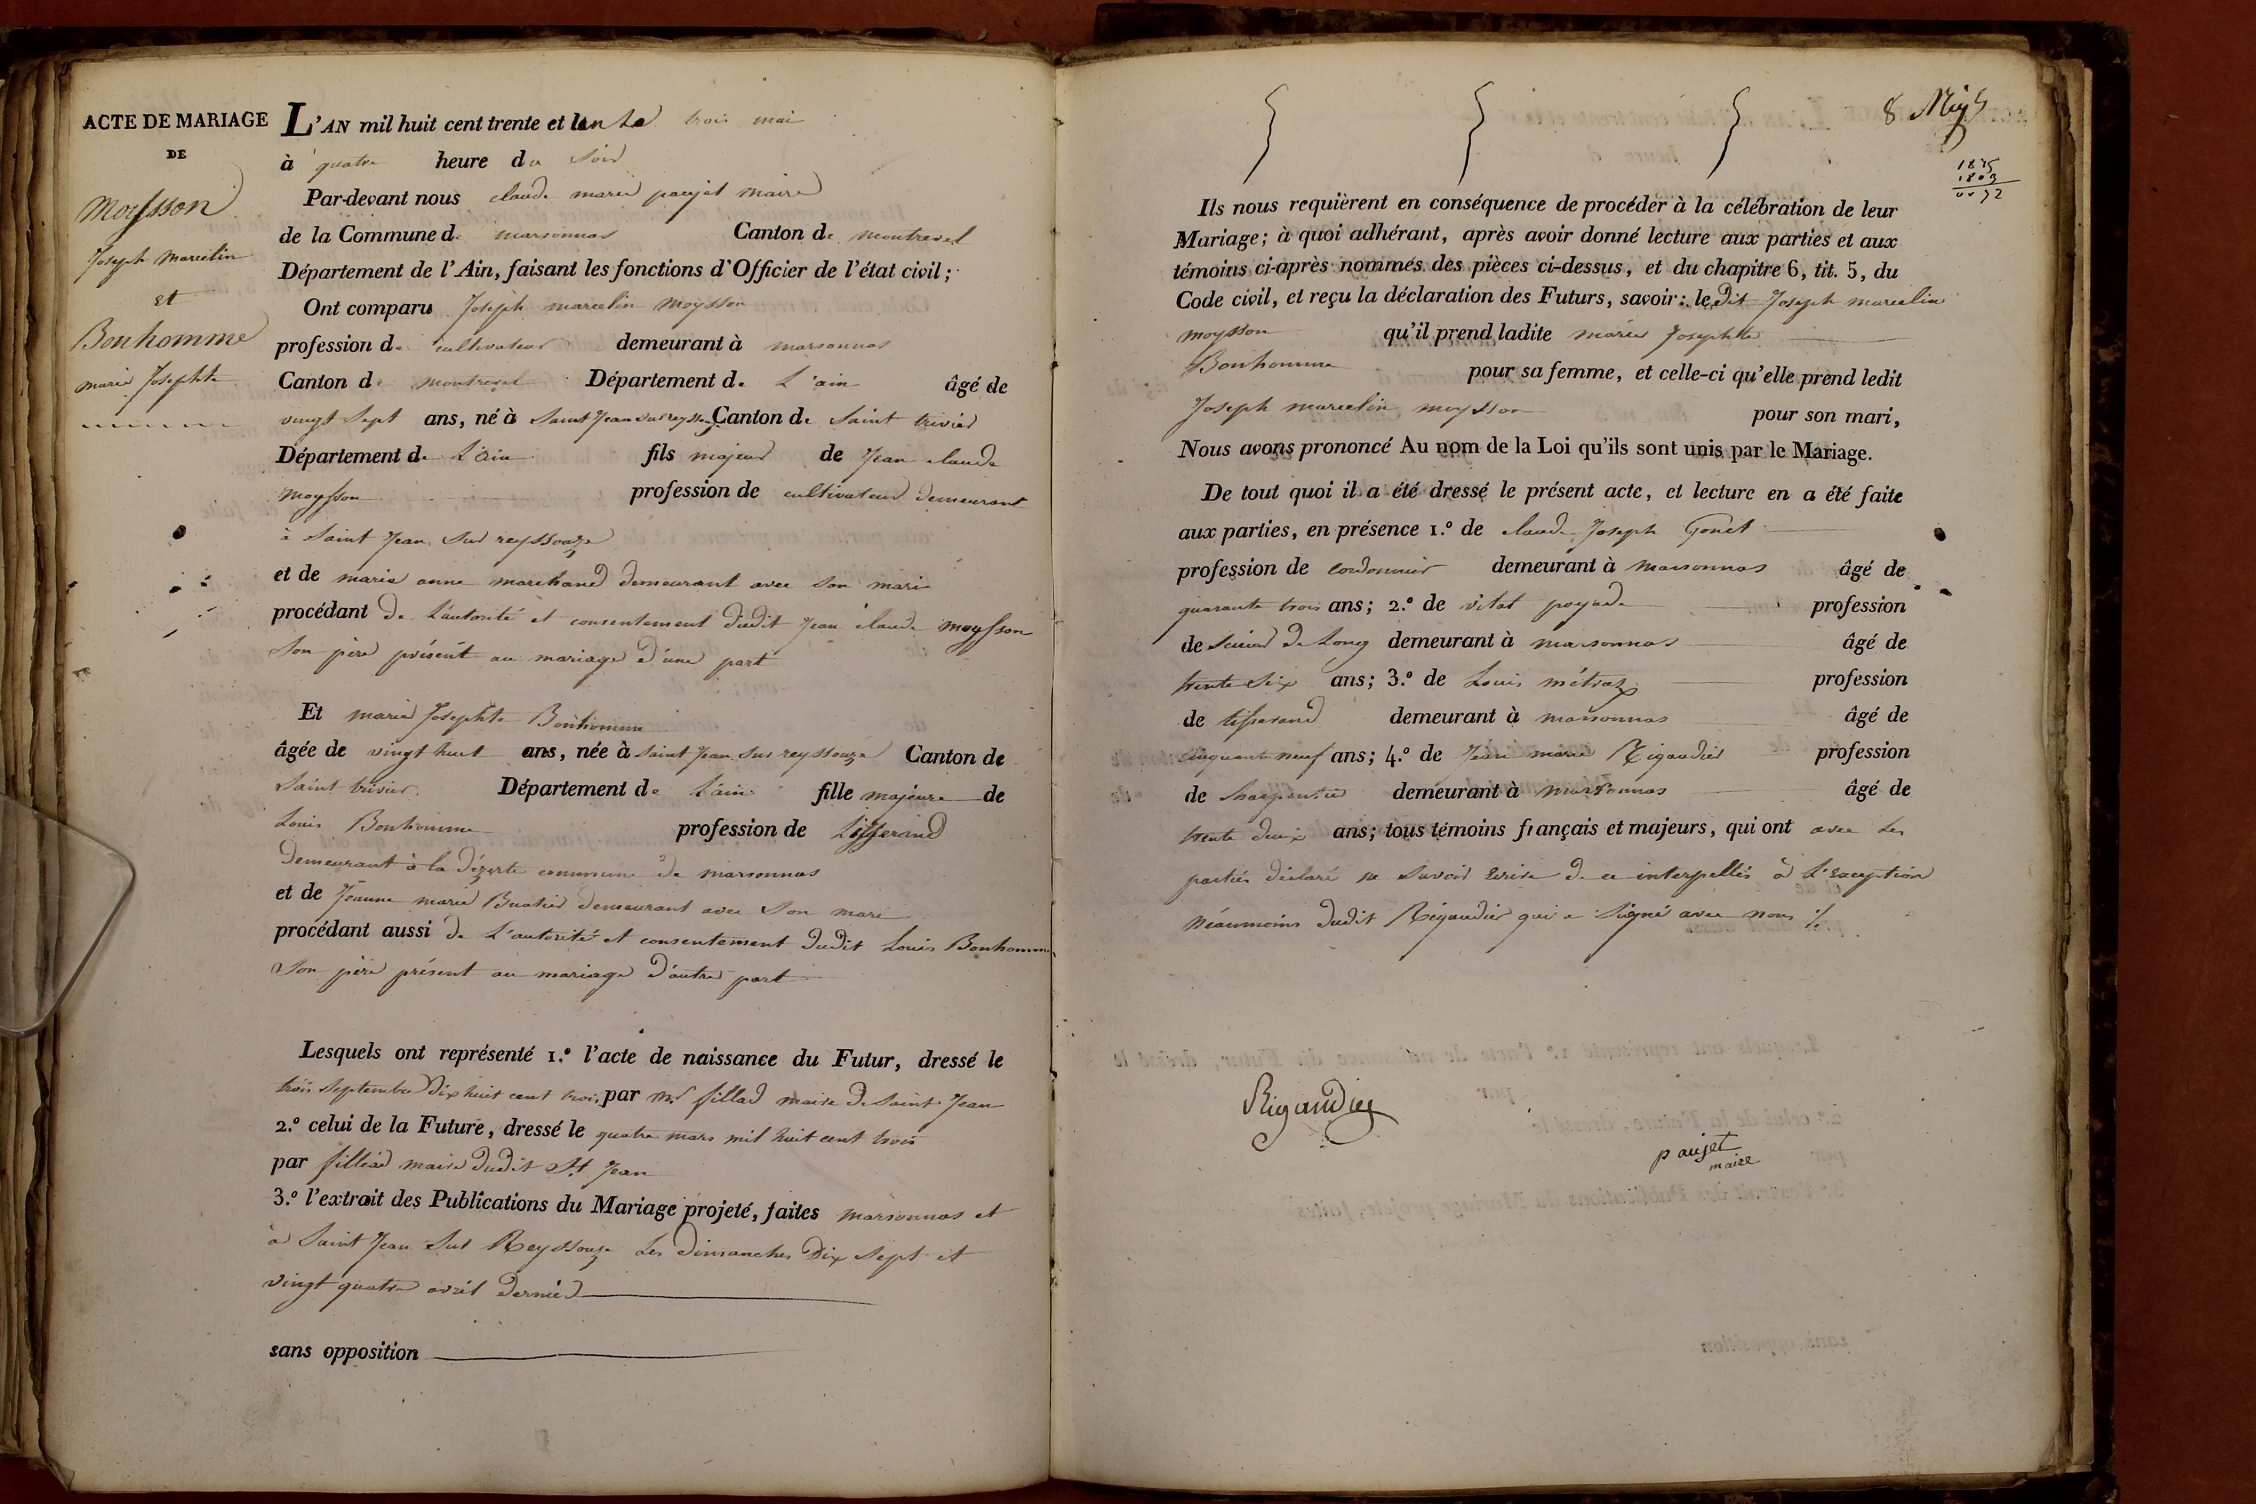 ACTE DE MARIAGE
DE
Moysson
Joseph marcelin
et
Bonhomme
marie Josephte
L'AN mil huit cent trente et un Le trois mai
à quatre heure du Soir
Par-devant nous claude marie paujet maire
de la Commune de marsonnas Canton de montrevel
Département de l'Ain, faisant les fonctions d'Officier de l'état civil;
Ont comparu Joseph marcelin moysson
profession de cultivateur demeurant à marsonnas
Canton de montrevel Département de L'ain âgé de
vingt Sept ans, né à Saint Jean sur reyssouze Canton de Saint trivier
Département de L'ain fils majeur de Jean claude
moysson profession de cultivateur demeurant
à Saint Jean Sur reyssouze
et de marie anne marchand demeurant avec son mari
procédant de L'autorité et consentement dudit Jean claude moysson
Son père présent au mariage d'une part
Et marie Josephte Bonhomme
âgée de vingt huit ans, née à Saint Jean Sur reyssouze Canton de
Saint trivier Département de L'ain fille majeure de
Louis Bonhomme profession de tisserand
demeurant à la dézerte commune de marsonnas
et de Jeanne marie Buatier demeurant avec Son mari
procédant aussi de L'autorité et consentement dudit Louis Bonhomme
Son père présent au mariage d'autre part
Lesquels ont représenté 1.º l'acte de naissance du Futur, dressé le
trois septembre dix huit cent trois par mr. fillod maire de Saint Jean
2.º celui de la Future, dressé le quatre mars mil huit cent trois
par maire dudit St Jean
3.º l'extrait des Publications du Mariage projeté, faites marsonnas et
à Saint Jean Sur Reyssouze Les dimanches Dix Sept et
vingt quatre avril dernier
sans opposition
8
1835
1803
Ils nous requièrent en conséquence de procéder à la célébration de leur
Mariage; à quoi adhérant, après avoir donné lecture aux parties et aux
témoins ci-après nommés des pièces ci-dessus, et du chapitre 6, tit. 5, du
Code civil, et reçu la déclaration des Futurs, savoir: ledit Joseph marcelin
moysson qu'il prend ladite marie Josephte
Bonhomme pour sa femme, et celle-ci qu'elle prend ledit
Joseph marcelin moysson pour son mari,
Nous avons prononcé Au nom de la Loi qu'ils sont unis par le Mariage.
De tout quoi il a été dressé le présent acte, et lecture en a été faite
aux parties, en présence 1.º de claude Joseph Gonet
profession de cordonnier demeurant à marsonnas âgé de
quarante trois ans; 2.º de vital poyade profession
de Scieur de Long demeurant à marsonnas âgé de
trente Six ans; 3.º de Louis métraz profession
de tisserand demeurant à marsonnas âgé de
cinquante neuf ans; 4.º de Jean marie Rigaudier profession
de charpentier demeurant à marsonnas âgé de
trente deux ans; tous témoins français et majeurs, qui ont avec Les
parties déclaré ne Savoir Ecrire de ce interpellés à L'exception
néanmoins dudit Rigaudier qui a Signé avec nous ./.
Rigaudier
paujet
maire